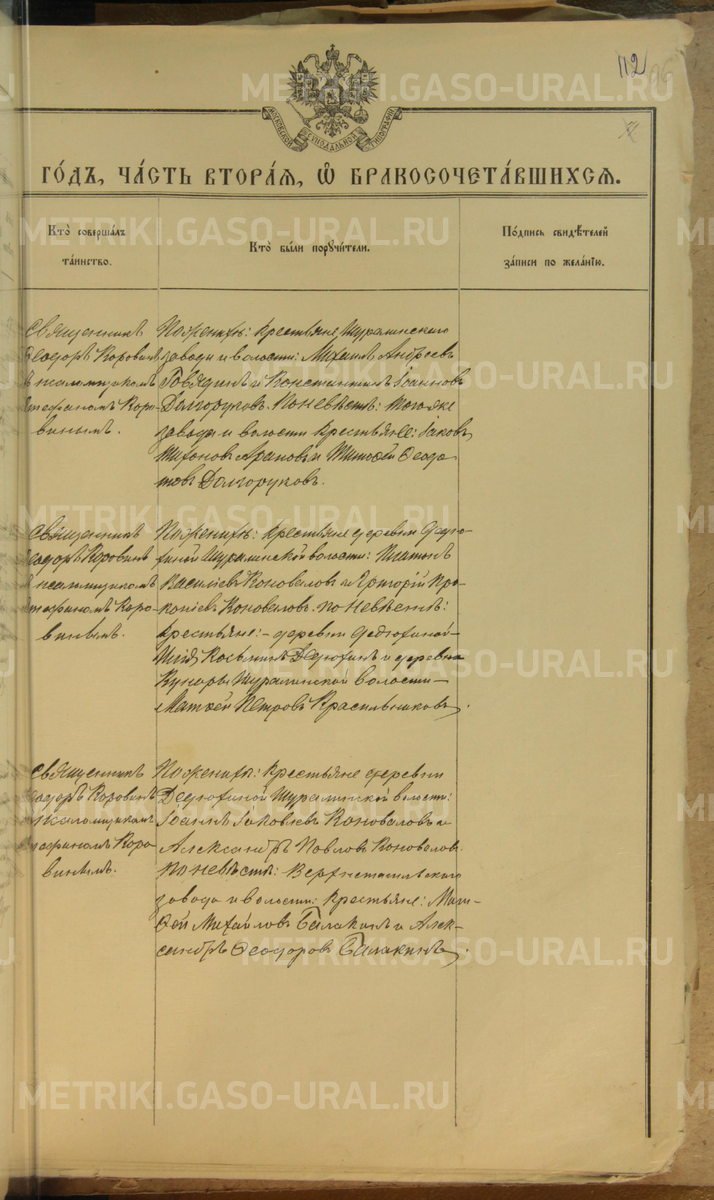 112
МОСКОВСКОЙ СѴНОДАЛЬНОЙ ТИПОГРАФІИ
ГО́ДЪ, ЧА́СТЬ ВТОРА́Я, Ѿ БРАКОСОЧЕТА́ВШИХСЯ.
Кто̀ соверша́лъ
та́инство.
Кто̀ бы́ли поручи́тели.
По́дпись свидѣ́телей
за́писи по жела́нїю.
Священникъ
Ѳеодоръ Коровинъ
съ псаломщикомъ
Стефаномъ Коро-
винымъ.
По женихѣ: крестьяне Шуралинскаго
завода и волости: Михаилъ Андреевъ
Говядинъ и Константинъ Іоанновъ
Долгоруковъ. По невѣстѣ: того же
завода и волости крестьяне: Іаковъ
Тихоновъ Араповъ и Тимоѳей Ѳеодо-
товъ Долгоруковъ.
Священникъ
Ѳеодоръ Коровинъ
съ псаломщикомъ
Стефаномъ Коро-
винымъ.
По женихѣ: крестьяне деревни Федю-
финой Шуралинской волости: Платонъ
Василіевъ Коноваловъ и Григорій Про-
копіевъ Коноваловъ. по невѣстѣ:
крестьяне: деревни
Косьминъ и деревни
Кунары Шуралинской волости
Матѳей Петровъ Красильниковъ.
Священникъ
Ѳеодоръ Коровинъ
съ псаломщикомъ
Стефаномъ Коро-
винымъ.
По женихѣ: крестьяне деревни
Шуралинской волости:
Іоаннъ Іаковлевъ Коноваловъ и
Александръ Павловъ Коноваловъ.
По невѣстѣ: Верхнетагильскаго
завода и волости: крестьяне: Мат-
ѳей Михаиловъ Балакинъ и Алек-
сандръ Ѳеодоровъ Балакинъ.
METRIKI.GASO-URAL.RU